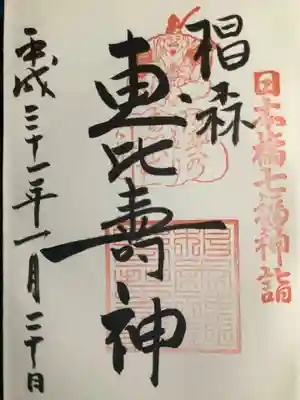 日本橋七福神詣
椙森
恵比寿神
平成三十一年一月二十日